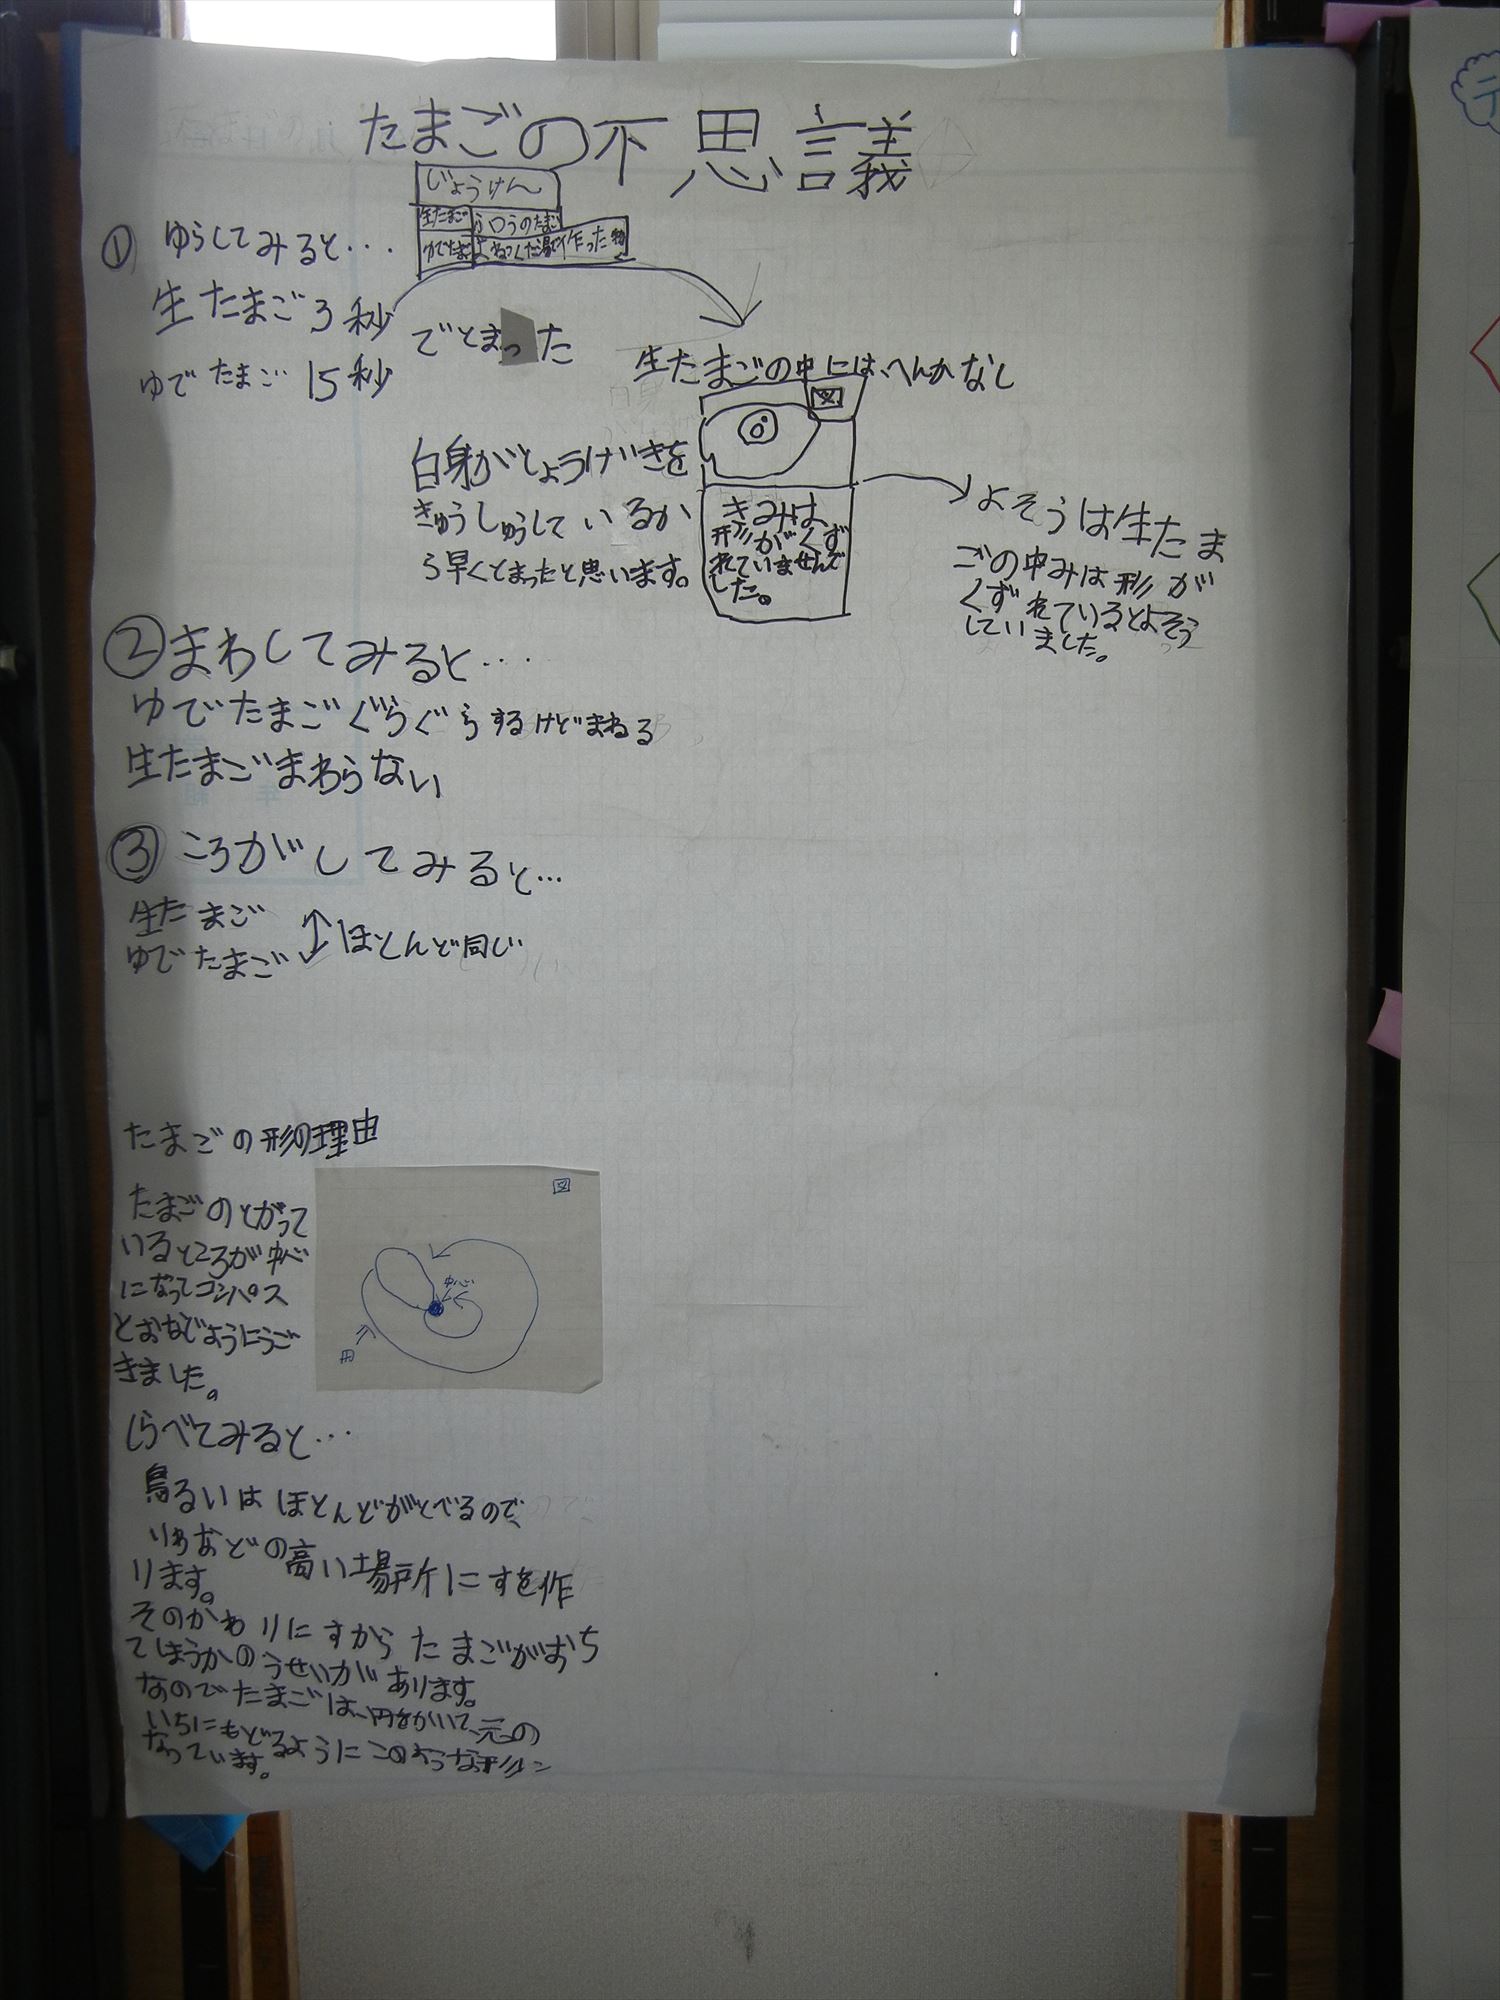 たまごの不思議
じょうけん
生たまご ふつうのたまご
ゆでたまご
① ゆらしてみると・・・
生たまご 3秒
ゆでたまご 15秒
でとまった
生たまごの中には、へんかなし
図
白身がしょうげいきを
きゅうしゅうしているか
ら早くとまったと思います。
きみは、
形がくず
れていませんで
した。
よそうは生たま
ごの中みは形が
くずれているとよそう
していました。
②まわしてみると・・・
ゆでたまごぐらぐらするけどまわる
生たまごまわらない
③ころがしてみると…
生たまご
ゆでたまご
ほとんど同じ
たまごの形の理由
たまごのとがって
いるところが中心
になってコンパス
とおなじようにうご
きました。
図
中心
しらべてみると・・・
鳥るいはほとんどがとべるので、
の高い場所にすを作
ります。
そのかわりにすからたまごがおち
てしまうかのうせいがあります。
なのでたまごは、円をかいて、元の
いちにもどるようにこのような形に
なっています。